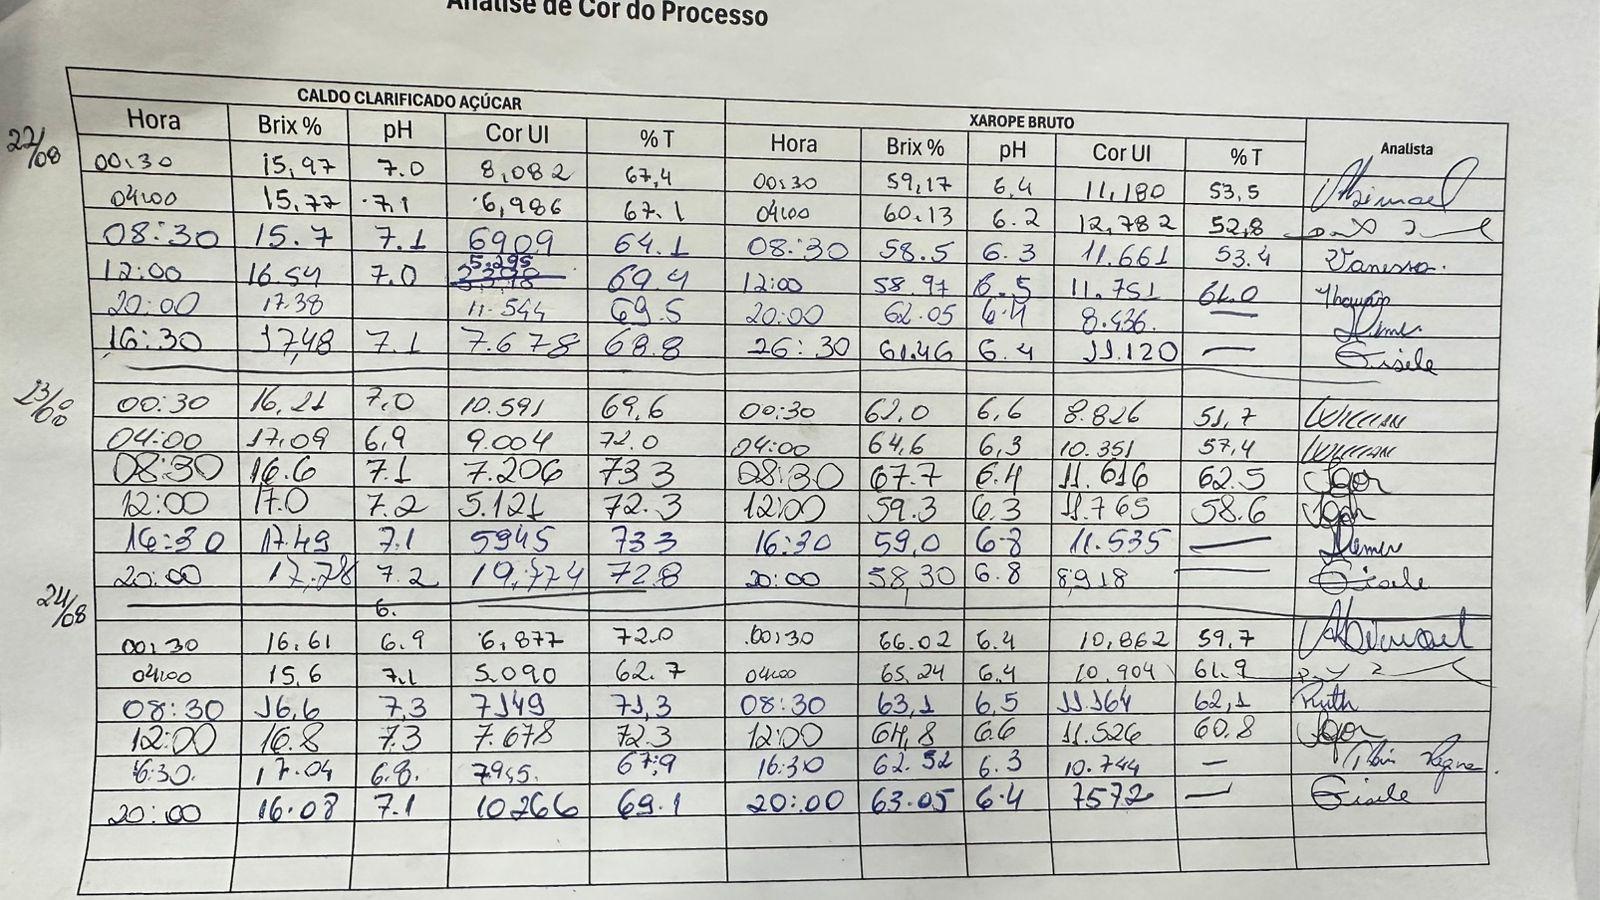 Análise de Cor do Processo
CALDO CLARIFICADO AÇÚCAR XAROPE BRUTO
Hora Brix % pH Cor UI % T Hora Brix % pH Cor UI % T Analista
22/08
00:30 15,97 7.0 8,082 67,4 00:30 59,17 6,4 11,180 53,5 Abimael
04:00 15,77 7.1 6,986 67.1 04:00 60.13 6.2 12,782 52,8
08:30 15.7 7.1 6909 64.1 08:30 58.5 6.3 11.661 53.4 Vanessa.
12:00 16.54 7.0 5,295 69.4 12:00 58.97 6.5 11.751 61.0
20:00 17.38 11.544 69.5 20:00 62.05 6.4 8.436.
16:30 17,48 7.1 7.678 68.8 26:30 61.46 6.4 11.120 — Gisele
23/08
00:30 16,21 7,0 10.591 69,6 00:30 62,0 6,6 8.826 51,7 William
04:00 17,09 6,9 9.004 72.0 04:00 64,6 6,3 10.351 57,4 William
08:30 16.6 7.1 7.206 733 08:30 67.7 6.4 11.616 62.5 Igor
12:00 17.0 7.2 5.121 72.3 12:00 59.3 6.3 11.765 58.6 Igor
16:30 17.49 7.1 5945 733 16:30 59,0 6.8 11.535 —
20:00 17,78 7.2 19,774 728 20:00 58,30 6.8 8,918 — Gisele
24/08
6.
00:30 16,61 6.9 6,877 72.0 00:30 66.02 6.4 10,862 59,7 Abimael
04:00 15,6 7.1 5.090 62.7 04:00 65,24 6.4 10.904 61.9
08:30 16,6 7,3 7149 71,3 08:30 63,1 6,5 11.164 62,1 Ruth
12:00 16.8 7.3 7.678 72.3 12:00 64,8 6.6 11.526 60.8 Igor
16:30. 17.04 6.8. 7.945. 67,9 16:30 62.52 6.3 10.744 —
20:00 16.08 7.1 10266 69.1 20:00 63.05 6.4 7572 — Gisele